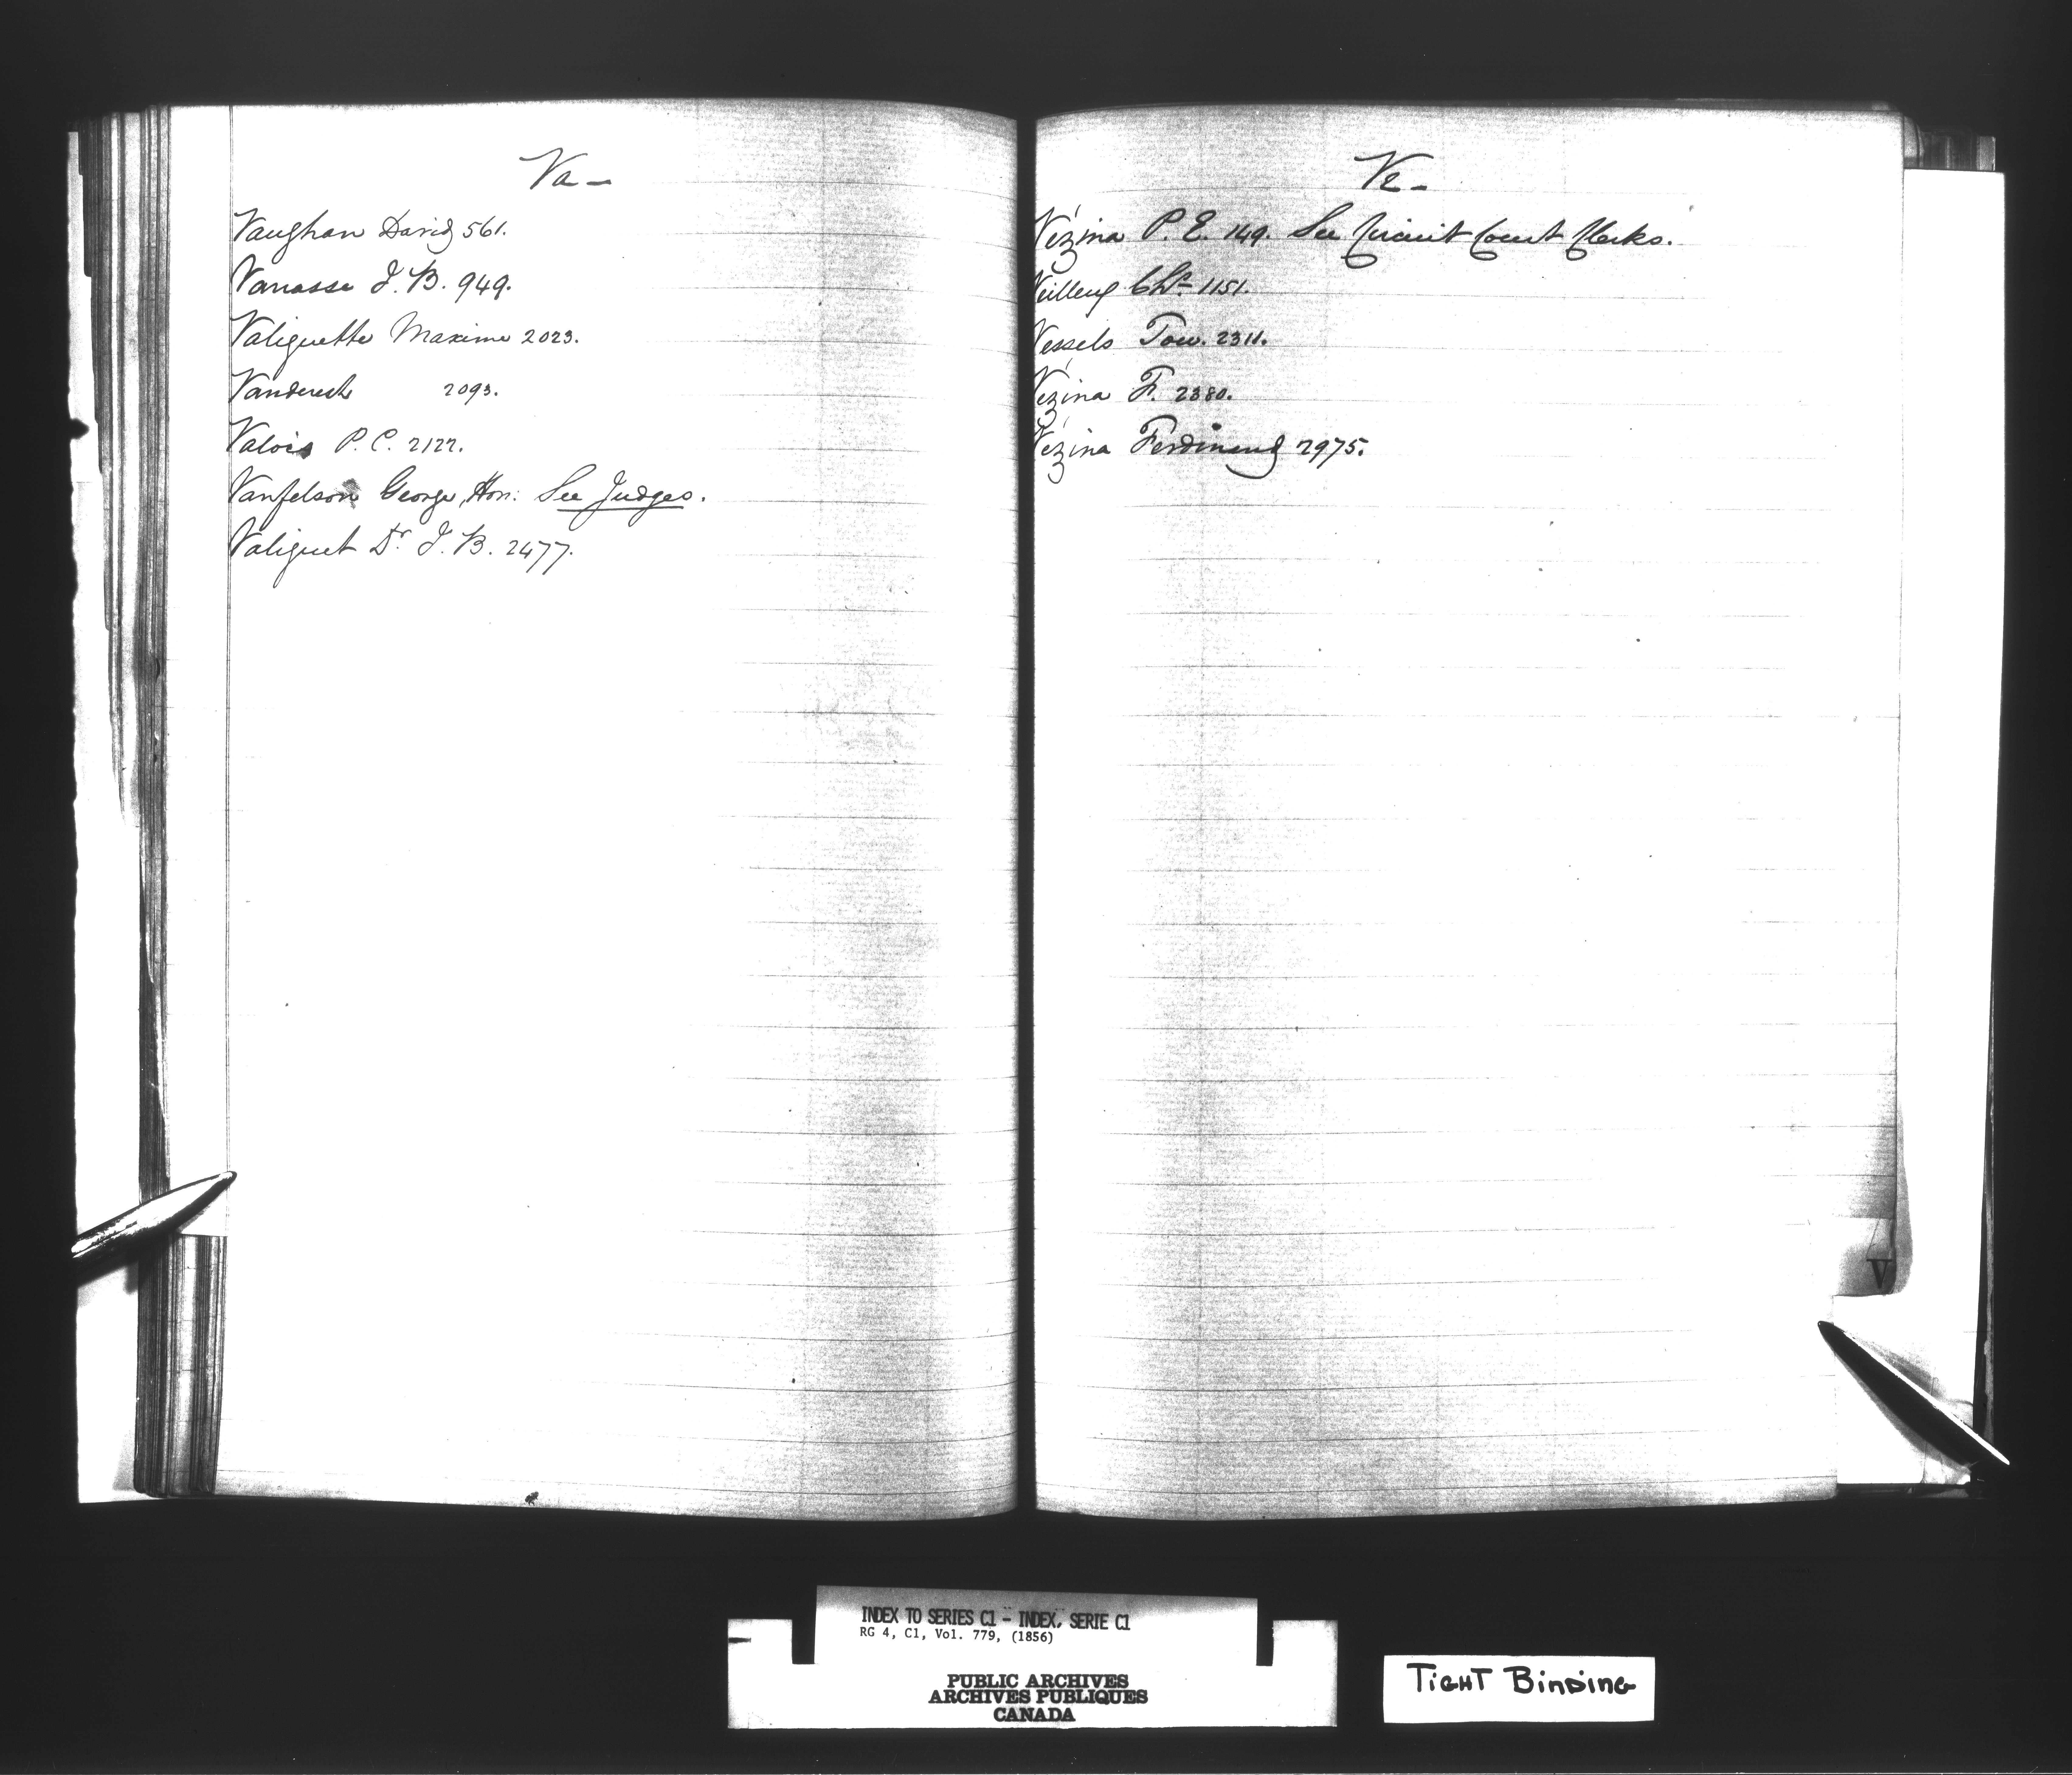 Va-
Vaughan David 561.
Vanasse J. B. 949.
Valiguette Maxime 2023.
2093.
Valois P. C. 2122.
Vanfelson George, Hon: See Judges.
Valiquet Dr J. B. 2477.
Ve-
Vézina P. E. 149. See Circuit Court Clerks.
Veilleux Chs 1151.
Vessels Tow. 2311.
Vézina F. 2380.
Vézina Ferdinand 2975.
V
INDEX TO SERIES C1 - INDEX, SERIE C1
RG 4, C1, Vol. 779, (1856)
PUBLIC ARCHIVES
ARCHIVES PUBLIQUES
CANADA
TIGHT BINDING